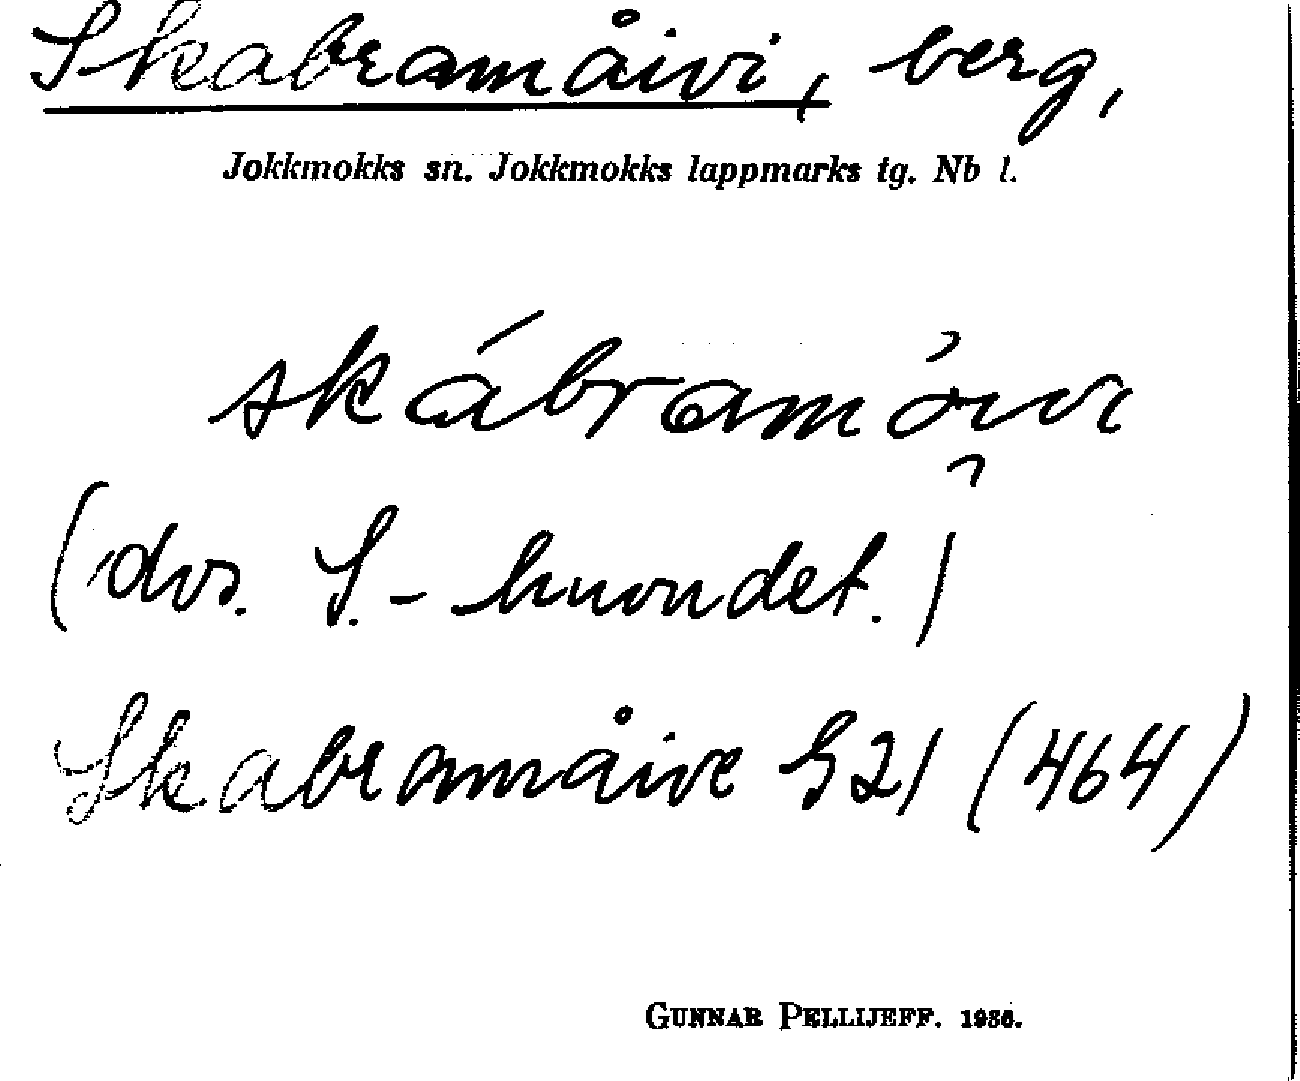 Skabramåivi, berg,
Jokkmokks sn. Jokkmokks lappmarks tg. Nb l.
skábramòivi
(dvs. S.-huvudet.)
Skabramåive G21 (464)
GUNNAR PELLIJEFF. 1936.